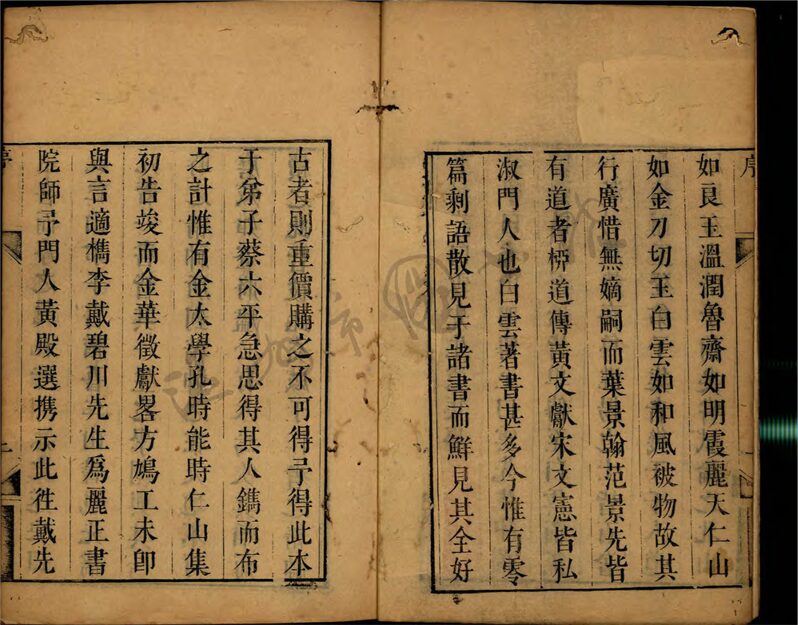 序
如良玉溫潤魯齋如明霞麗天仁山
如金刀切玉白雲如和風被物故其
行廣惜無嫡嗣而葉景翰范景先皆
有道者柳道傳黃文獻宋文憲皆私
淑門人也白雲著書甚多今惟有零
篇剩語散見于諸書而鮮見其全好
古者則重價購之不可得予得此本
于弟子蔡六平急思得其人鐫而布
之計惟有金太學孔時能時仁山集
初告竣而金華徵獻畧方鳩工未卽
與言適檇李戴碧川先生爲麗正書
院師予門人黃殿選携示此徃戴先